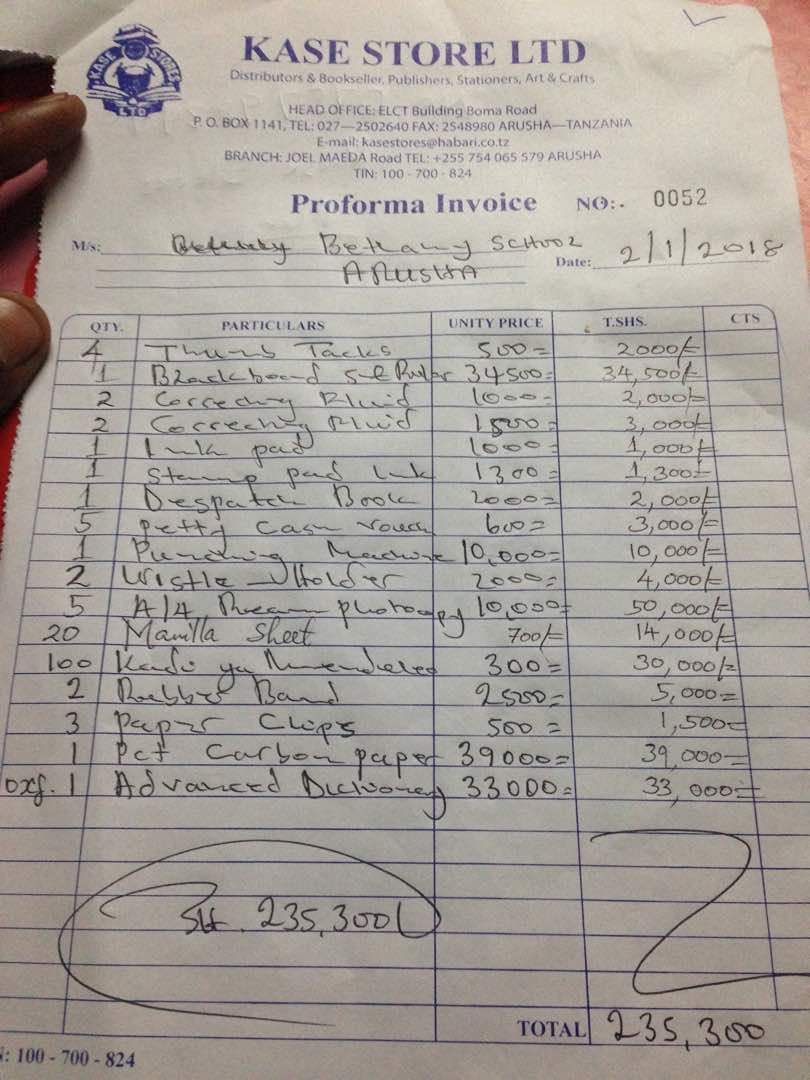 KASE STORES LTD
KASE STORE LTD
Distributors & Bookseller, Publishers, Stationers, Art & Crafts
HEAD OFFICE: ELCT Building Boma Road
P. O. BOX 1141, TEL: 027—2502640 FAX: 2548980 ARUSHA—TANZANIA
E-mail: kasestores@habari.co.tz
BRANCH: JOEL MAEDA Road TEL: +255 754 065 579 ARUSHA
TIN: 100 - 700 - 824
Proforma Invoice NO:- 0052
M/s: Bethany SCHOOL
ARUSHA Date: 2/1/2018
QTY. PARTICULARS UNITY PRICE T.SHS. CTS
4 Thumb Tacks 500= 2000/=
1 Blackboard Ruler 34500= 34,500/=
2 Correcting Fluid 1000= 2,000/=
2 Correcting Fluid 1500= 3,000/=
1 Ink pad 1000= 1,000/=
1 Stamp pad Ink 1300= 1,300=
1 Despatch Book 2000= 2,000/=
5 Petty Cash Vouch 600= 3,000/=
1 Punching Machine 10,000= 10,000/=
2 Wistle Holder 2000= 4,000/=
5 A/4 Ream photocopy 10,000= 50,000/=
20 Manilla Sheet 700/= 14,000/=
100 Kadi ya 300= 30,000/=
2 Rubber Band 2500= 5,000=
3 Paper Clips 500= 1,500=
1 Pct Carbon paper 39000= 39,000=
oxf. 1 Advanced Dictionary 33000= 33,000=
SH. 235,300/
TOTAL 235,300
N: 100 - 700 - 824